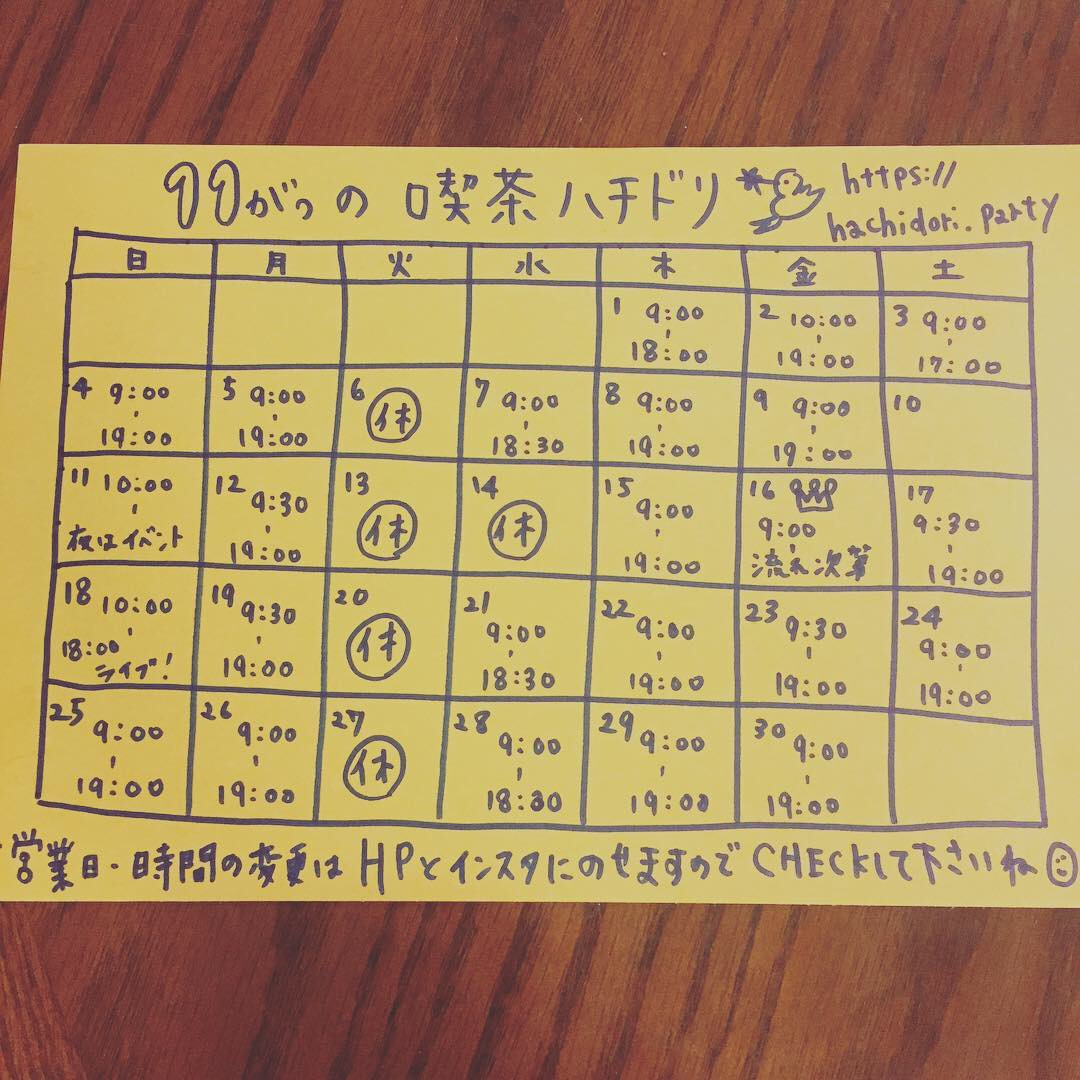 11がつの 喫茶ハチドリ
https://
hachidori.party
日 月 火 水 木 金 土
1 9:00 - 18:00
2 10:00 - 19:00
3 9:00 - 17:00
4 9:00 - 19:00
5 9:00 - 19:00
6 休
7 9:00 - 18:30
8 9:00 - 19:00
9 9:00 - 19:00
10
11 10:00 - 夜はイベント
12 9:30 - 19:00
13 休
14 休
15 9:00 - 19:00
16 9:00 - 流れ次第
17 9:30 - 19:00
18 10:00 - 18:00 ライブ!
19 9:30 - 19:00
20 休
21 9:00 - 18:30
22 9:00 - 19:00
23 9:30 - 19:00
24 9:00 - 19:00
25 9:00 - 19:00
26 9:00 - 19:00
27 休
28 9:00 - 18:30
29 9:00 - 19:00
30 9:00 - 19:00
営業日・時間の変更は HPとインスタにのせますので CHECKして下さいね